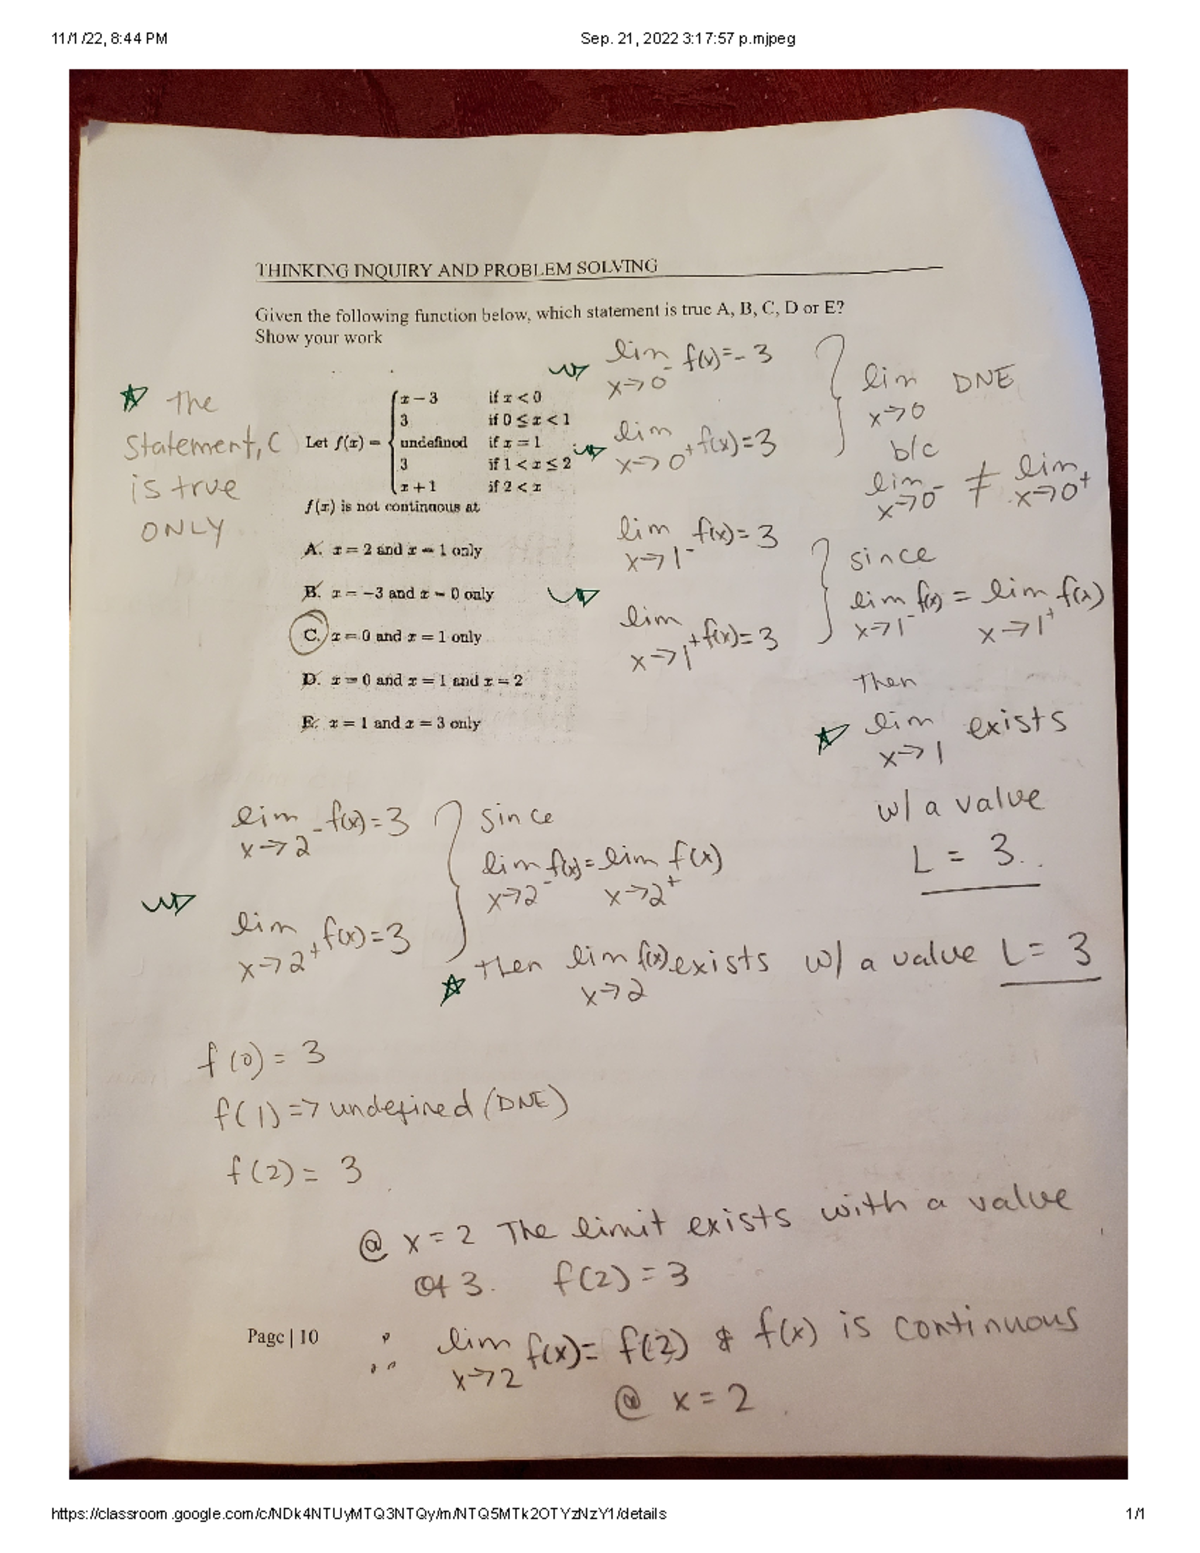 11/1/22, 8:44 PM
Sep. 21, 2022 3:17:57 p.m.jpeg
THINKING INQUIRY AND PROBLEM SOLVING
Given the following function below, which statement is true A, B, C, D or E?
Show your work
Let f(x) = { x − 3 if x < 0
3 if 0 ≤ x < 1
undefined if x = 1
3 if 1 < x ≤ 2
x + 1 if 2 < x
f(x) is not continuous at
A. x = 2 and x = 1 only
B. x = −3 and x = 0 only
C. x = 0 and x = 1 only
D. x = 0 and x = 1 and x = 2
E. x = 1 and x = 3 only
The
statement, C
is true
ONLY
lim f(x) = -3
x→0⁻
lim f(x) = 3
x→0⁺
lim DNE
x→0
b/c
lim ≠ lim
x→0⁻ x→0⁺
lim f(x) = 3
x→1⁻
lim f(x) = 3
x→1⁺
since
lim f(x) = lim f(x)
x→1⁻ x→1⁺
then
lim exists
x→1
w/ a value
L = 3.
lim f(x) = 3
x→2⁻
lim f(x) = 3
x→2⁺
since
lim f(x) = lim f(x)
x→2⁻ x→2⁺
then lim f(x) exists w/ a value L = 3
x→2
f(0) = 3
f(1) => undefined (DNE)
f(2) = 3
@ x = 2 The limit exists with a value
of 3. f(2) = 3
∴ lim f(x) = f(2) & f(x) is continuous
x→2
@ x = 2
Page | 10
https://classroom.google.com/c/NDk4NTUyMTQ3NTQy/m/NTQ5MTk2OTYzNzY1/details
1/1